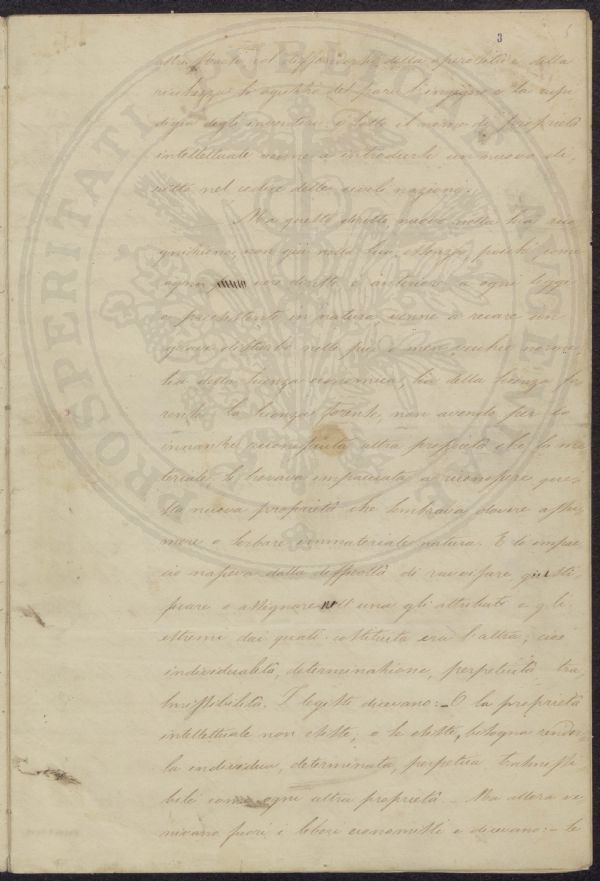 3
col diffondersi della operosità e della
ricchezza lo spirito del l'ingegno e la
degli inventori, e sotto il nome di proprietà
intellettuale venne a introdursi un nuovo di,
ritto nel codice delle civili nazioni.
Ma questo diritto, nuovo nella sua
non già nella sua essenza, poichè come
ogni vero diritto è anteriore a ogni legge
e preesistente in natura venne a recare un
grave disturbo nelle più o men vecchie
della scienza economica, sia della scienza fo
rense. La scienza forense, non avendo per lo
innanzi riconosciuta altra proprietà che la ma
teriale, si trovava impacciata a riconoscere que
sta nuova proprietà che sembrava dovere
o serbare immateriale natura. E lo impac
cio nasceva dalla difficoltà di ravvisare,
ficare o assegnare all'una gli attributi e gli
estremi dai quali costituita era l'altra; cioè
individualità, determinazione, perpetuità tra
smissibilità. I legisti dicevano: O la proprietà
intellettuale non esiste, o se esiste, bisogna render
la individua, determinata, perpetua, trasmissi
bile come ogni altra proprietà. Ma allora ve
nivano fuori i economisti e dicevano: se
PROSPERITATI PUBLICAE AUGENDAE